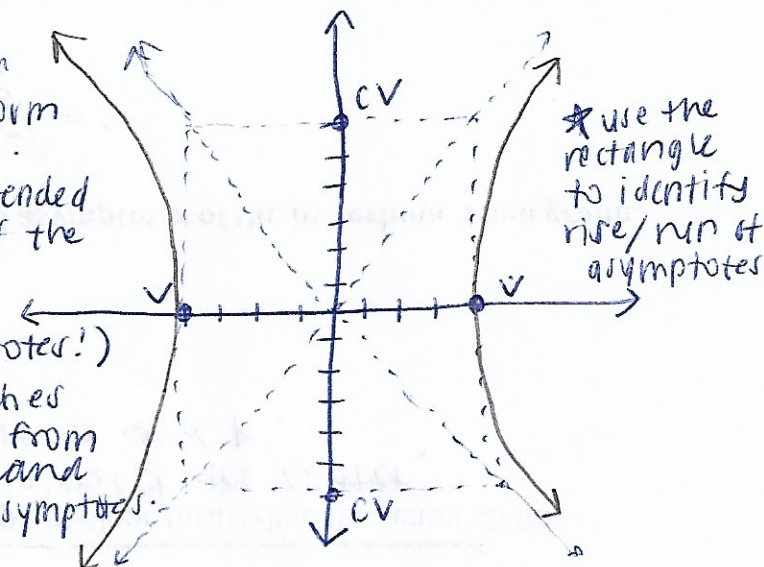 orm
ended
the
otes!)
hes
from
and
symptotes.
CV
V
V
CV
* use the
rectangle
to identify
rise/run of
asymptotes